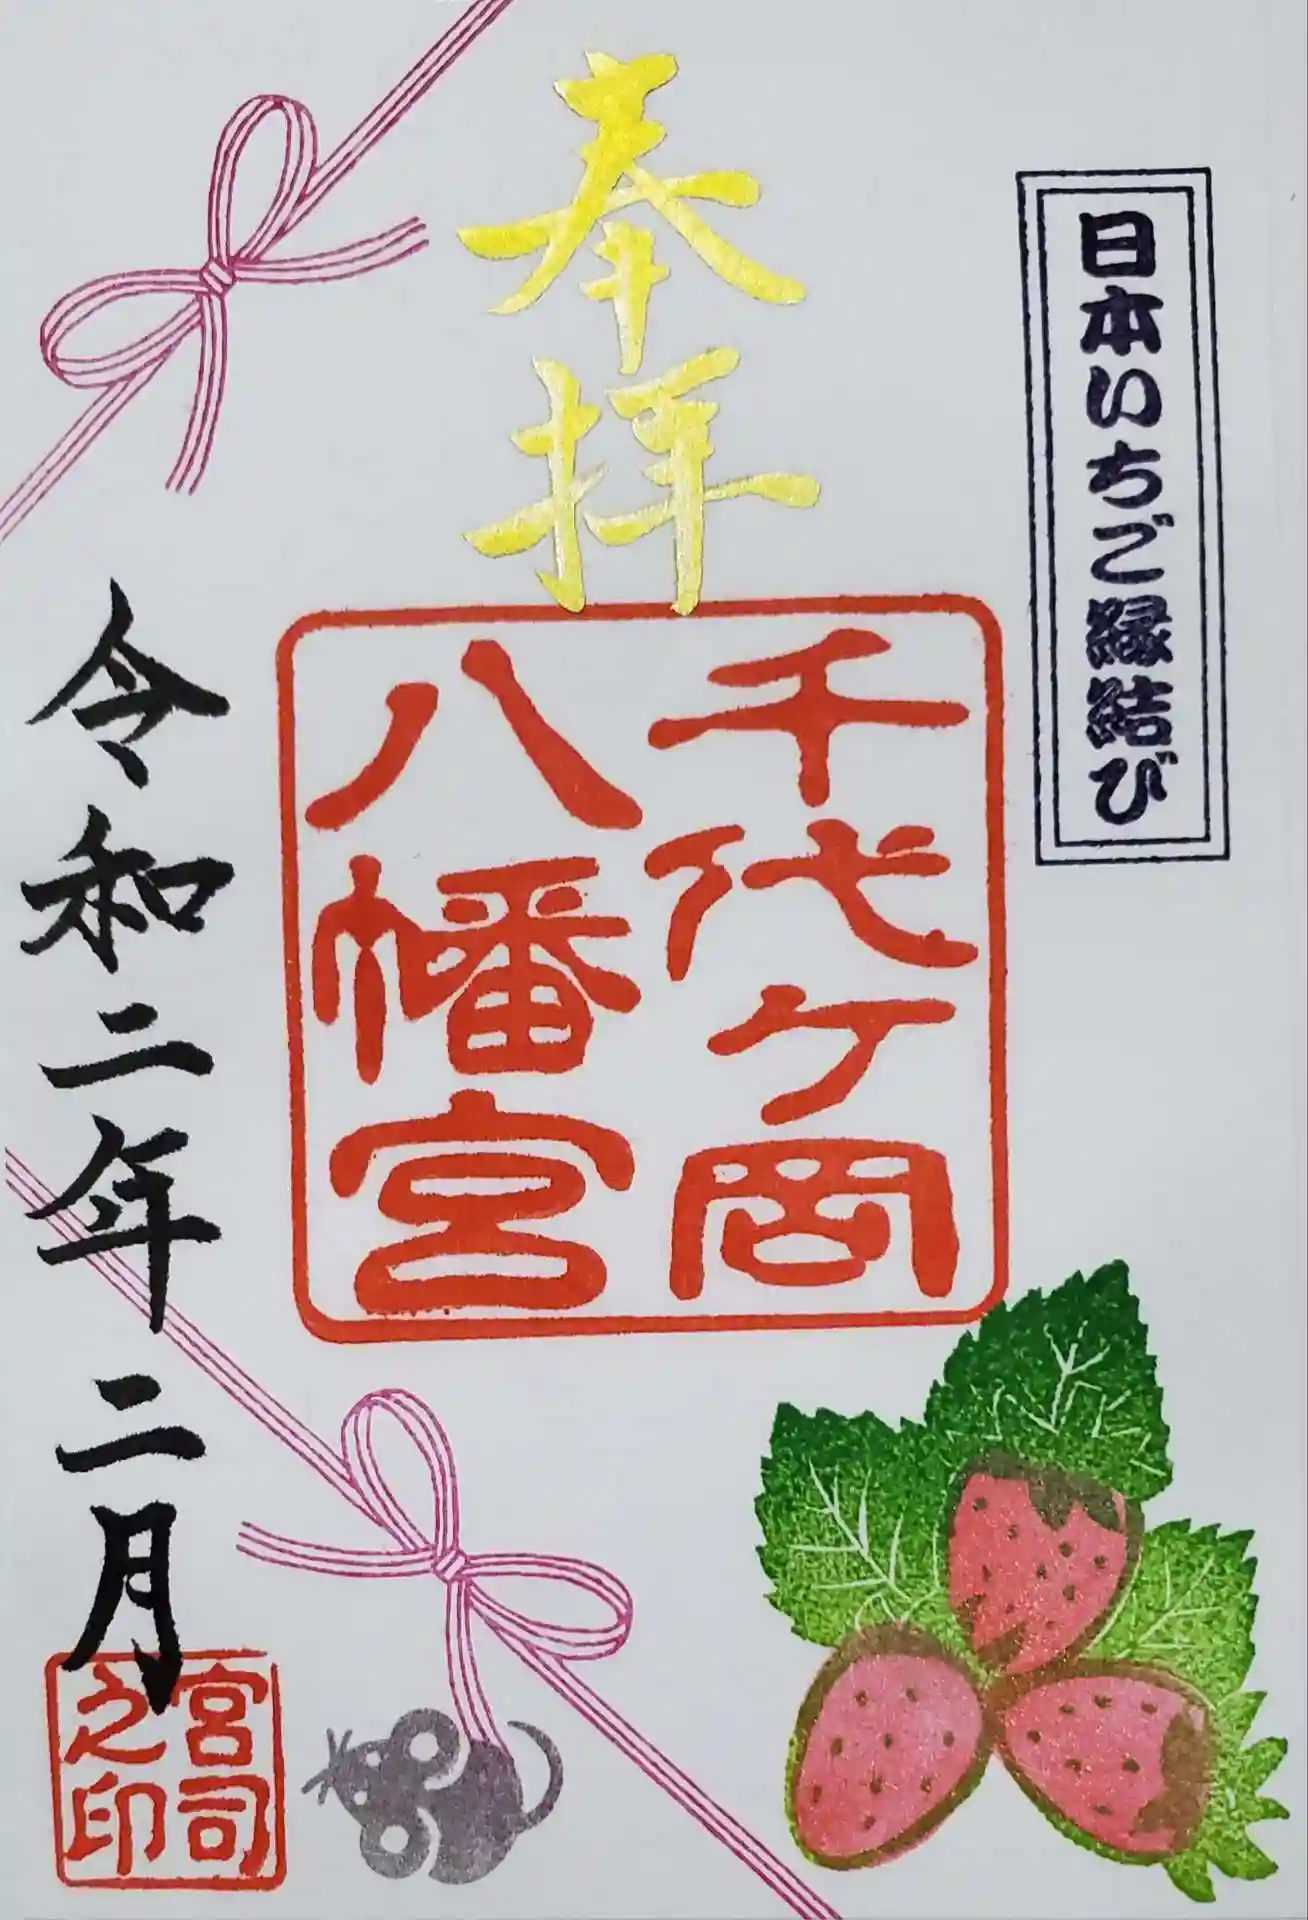 日本いちご縁結び
奉拝
千代ケ岡
八幡宮
令和二年二月
宮司
之印